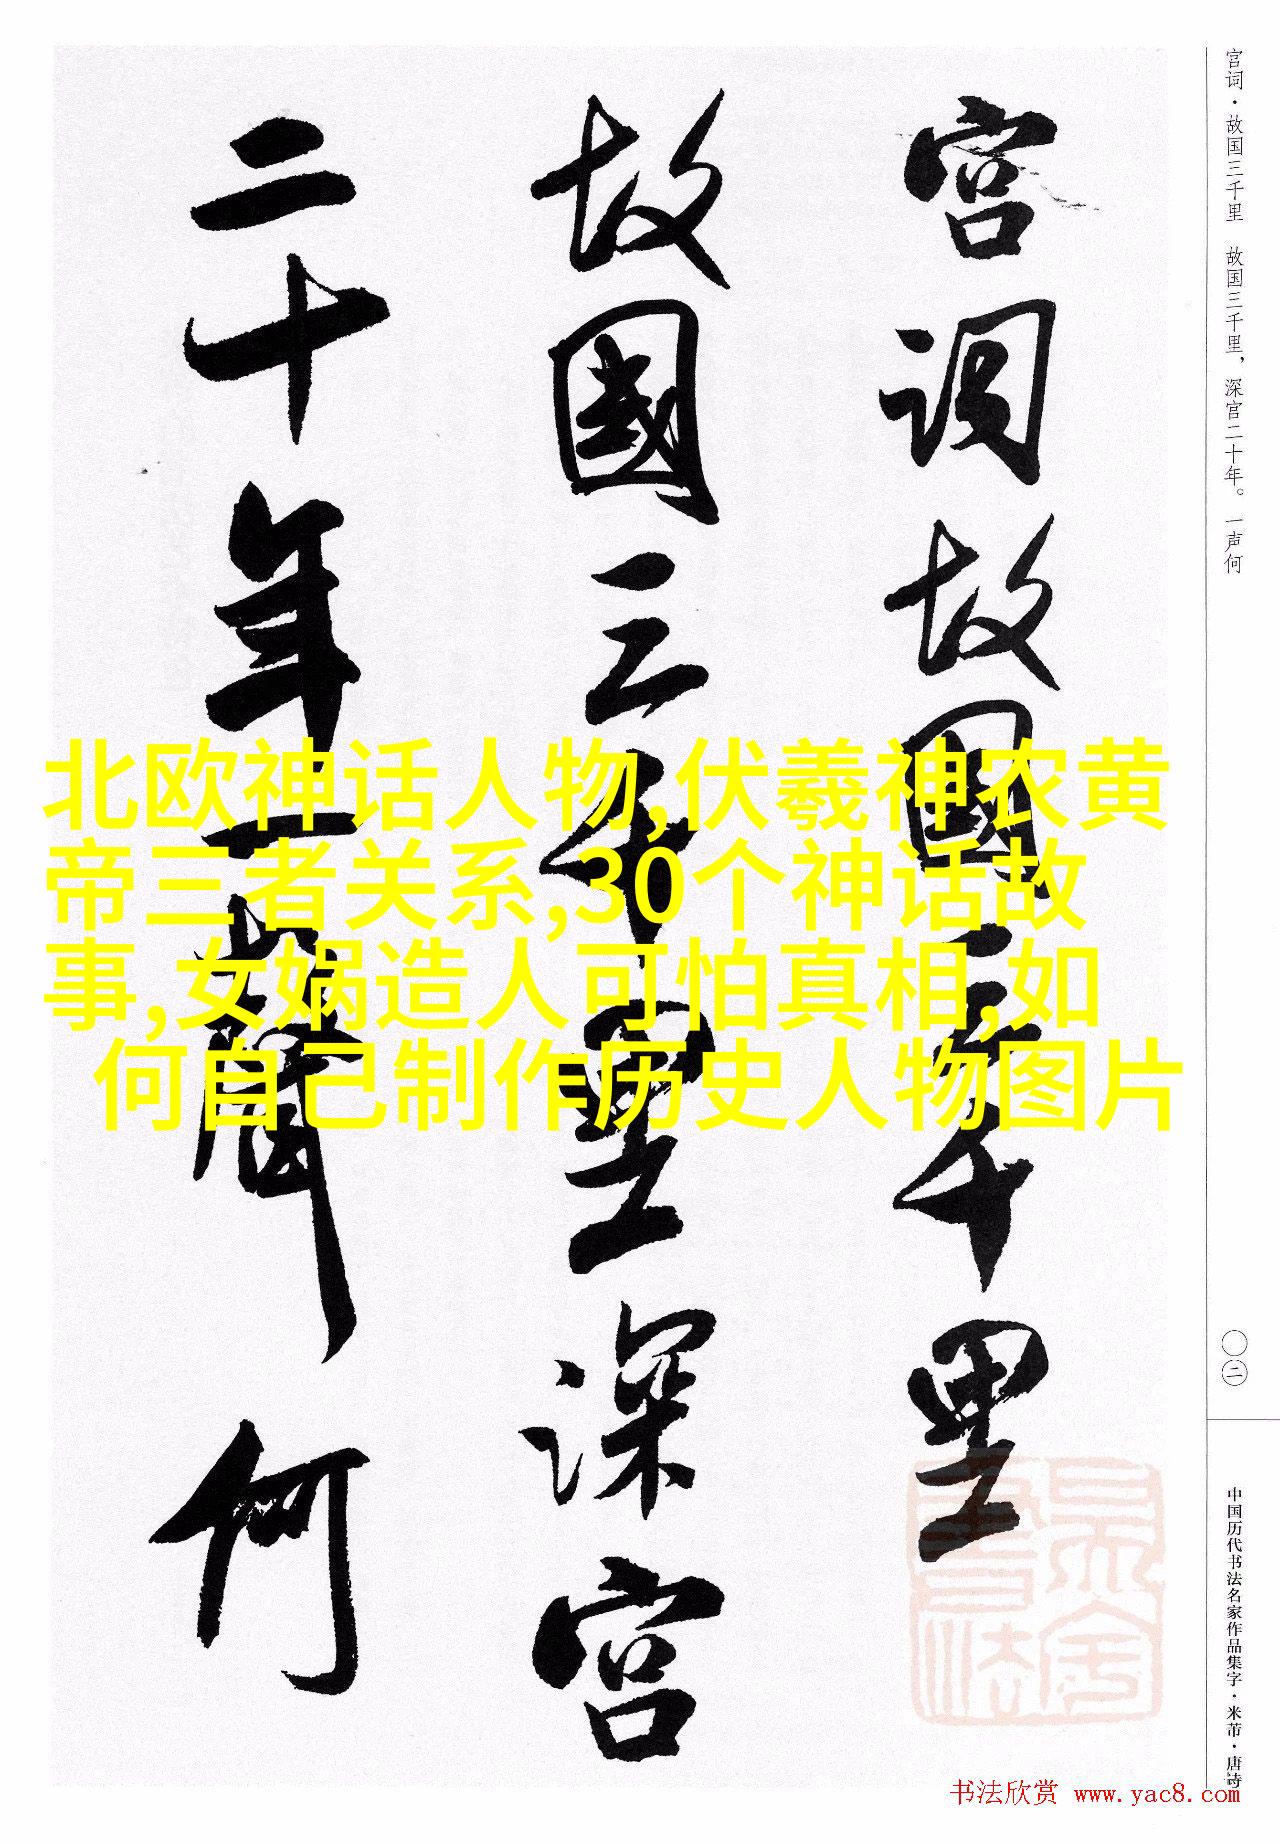 宫词故国三千里
故國三千里深宫
二十年一聲何
宫词·故国三千里　故国三千里，深宫二十年。一声何
〇二
中国历代书法名家作品集字·米芾·唐诗
北欧神话人物,伏羲神农黄
帝三者关系,30个神话故
事,女娲造人可怕真相,如
何自己制作历史人物图片
书法欣赏 www.yac8.com